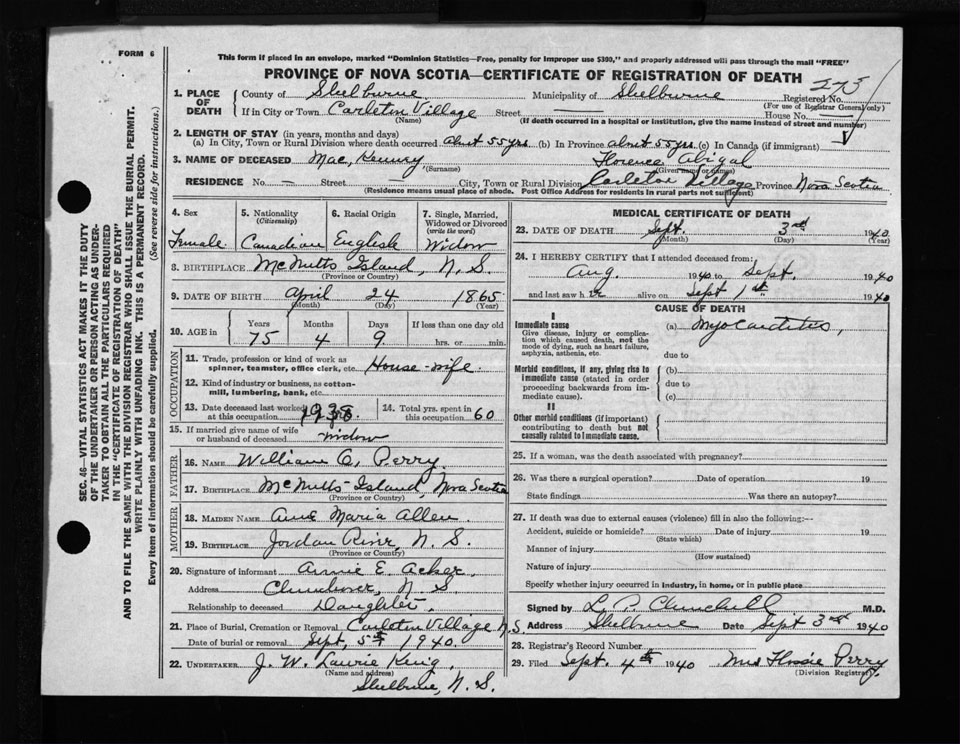 FORM 6
This form if placed in an envelope, marked "Dominion Statistics—Free, penalty for improper use $300," and properly addressed will pass through the mail "FREE"
PROVINCE OF NOVA SCOTIA—CERTIFICATE OF REGISTRATION OF DEATH
275
1. PLACE OF DEATH
County of Shelburne Municipality of Shelburne Registered No.
(For use of Registrar General only)
If in City or Town Carleton Village Street House No.
(Name) (If death occurred in a hospital or institution, give the name instead of street and number)
2. LENGTH OF STAY (in years, months and days)
(a) In City, Town or Rural Division where death occurred about 55 yrs. (b) In Province about 55 yrs. (c) In Canada (if immigrant)
3. NAME OF DECEASED Mac, Kenney Florence Abigal
(Surname) (Given name or names)
RESIDENCE No. — Street City, Town or Rural Division Carleton Village Province Nova Scotia
(Residence means usual place of abode. Post Office Address for residents in rural parts not sufficient)
4. Sex
Female
5. Nationality
(Citizenship)
Canadian
6. Racial Origin
English
7. Single, Married, Widowed or Divorced
(write the word)
Widow
8. BIRTHPLACE McNutts Island, N. S.
(Province or Country)
9. DATE OF BIRTH April 24 1865
(Month) (Day) (Year)
10. AGE in
Years Months Days If less than one day old
75 4 9 hrs. or min.
OCCUPATION
11. Trade, profession or kind of work as
spinner, teamster, office clerk, etc. House-wife
12. Kind of industry or business, as cotton-
mill, lumbering, bank, etc.
13. Date deceased last worked
at this occupation 1938
14. Total yrs. spent in
this occupation 60
15. If married give name of wife
or husband of deceased widow
FATHER
16. NAME William C. Perry
17. BIRTHPLACE McNutts Island, Nova Scotia
(Province or Country)
MOTHER
18. MAIDEN NAME Ann Maria Allen
19. BIRTHPLACE Jordan River, N. S.
(Province or Country)
20. Signature of informant Annie E. Acker
Address Churchover, N. S.
Relationship to deceased Daughter.
21. Place of Burial, Cremation or Removal Carleton Village N.S.
Date of burial or removal Sept, 5th 1940.
22. UNDERTAKER J. W. Laurie King,
(Name and address)
Shelburne, N. S.
MEDICAL CERTIFICATE OF DEATH
23. DATE OF DEATH Sept. 3rd 1940
(Month) (Day) (Year)
24. I HEREBY CERTIFY that I attended deceased from:
Aug. 1940 to Sept. 1940
and last saw her alive on Sept 1st 1940
CAUSE OF DEATH
I
Immediate cause
Give disease, injury or complica-
tion which caused death, not the
mode of dying, such as heart failure,
asphyxia, asthenia, etc.
(a) Myocarditis,
due to
Morbid conditions, if any, giving rise to
immediate cause (stated in order
proceeding backwards from im-
mediate cause).
(b)
due to
(c)
II
Other morbid conditions (if important)
contributing to death but not
causally related to immediate cause.
25. If a woman, was the death associated with pregnancy?
26. Was there a surgical operation? Date of operation 19
State findings Was there an autopsy?
27. If death was due to external causes (violence) fill in also the following:—
Accident, suicide or homicide? Date of injury 19
(State which)
Manner of injury
(How sustained)
Nature of injury
Specify whether injury occurred in industry, in home, or in public place
Signed by L. P. Churchill M.D.
Address Shelburne Date Sept 3rd 1940
28. Registrar's Record Number
29. Filed Sept. 4th 1940 Mrs Flossie Perry
(Division Registrar)
SEC. 46—VITAL STATISTICS ACT MAKES IT THE DUTY
OF THE UNDERTAKER OR PERSON ACTING AS UNDER-
TAKER TO OBTAIN ALL THE PARTICULARS REQUIRED
IN THE "CERTIFICATE OF REGISTRATION OF DEATH"
AND TO FILE THE SAME WITH THE DIVISION REGISTRAR WHO SHALL ISSUE THE BURIAL PERMIT.
WRITE PLAINLY WITH UNFADING INK. THIS IS A PERMANENT RECORD.
Every item of information should be carefully supplied. (See reverse side for instructions.)